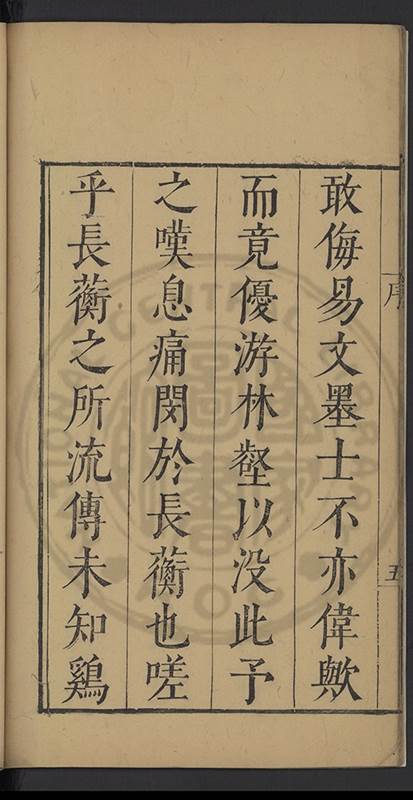 敢侮易文墨士不亦偉歟
而竟優游林壑以没此予
之嘆息痛閔於長蘅也嗟
乎長蘅之所流傳未知鷄
序
五